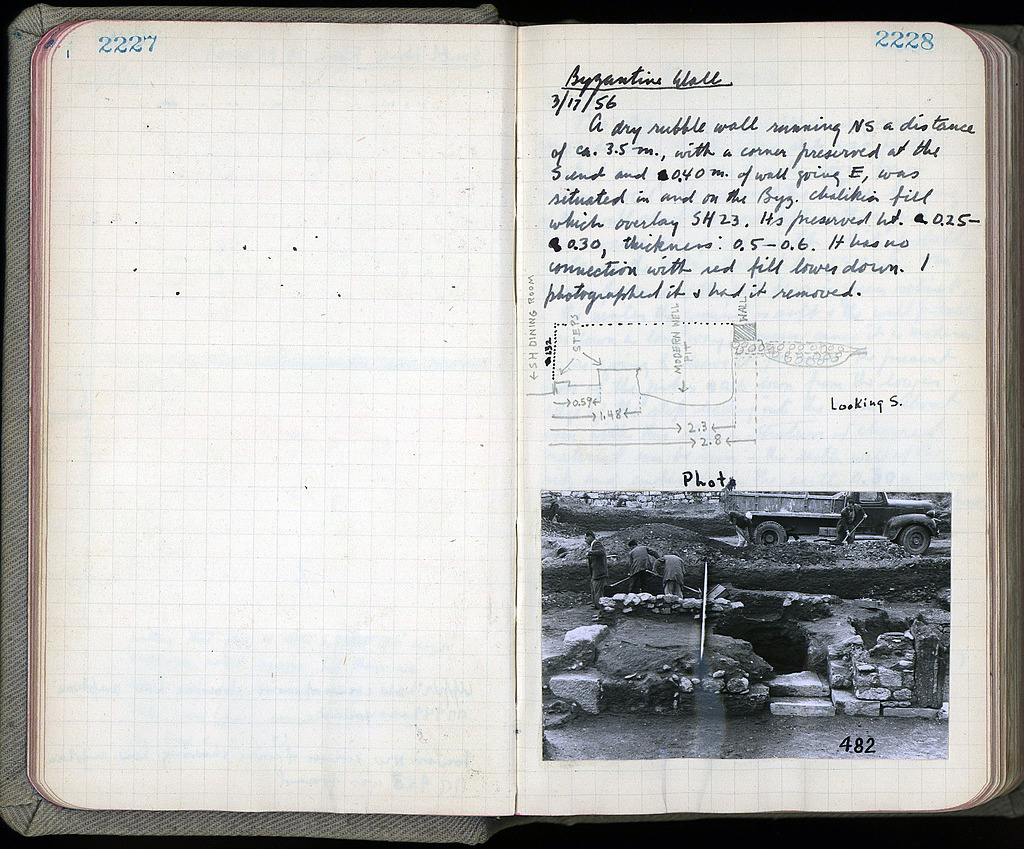 2227
2228
Byzantine Wall
3/17/56
A dry rubble wall running NS a distance
of ca. 3.5 m., with a corner preserved at the
S end and 0.40 m. of wall going E, was
situated in and on the Byz. chalikia fill
which overlay SH 23. Its preserved ht. 0.25–
0.30, thickness: 0.5–0.6. It has no
connection with red fill lower down. I
photographed it & had it removed.
← SH DINING ROOM
1.32
STEPS
MODERN WELL
PIT
WALL
0.59
1.48
2.3
2.8
Looking S.
Photo
482